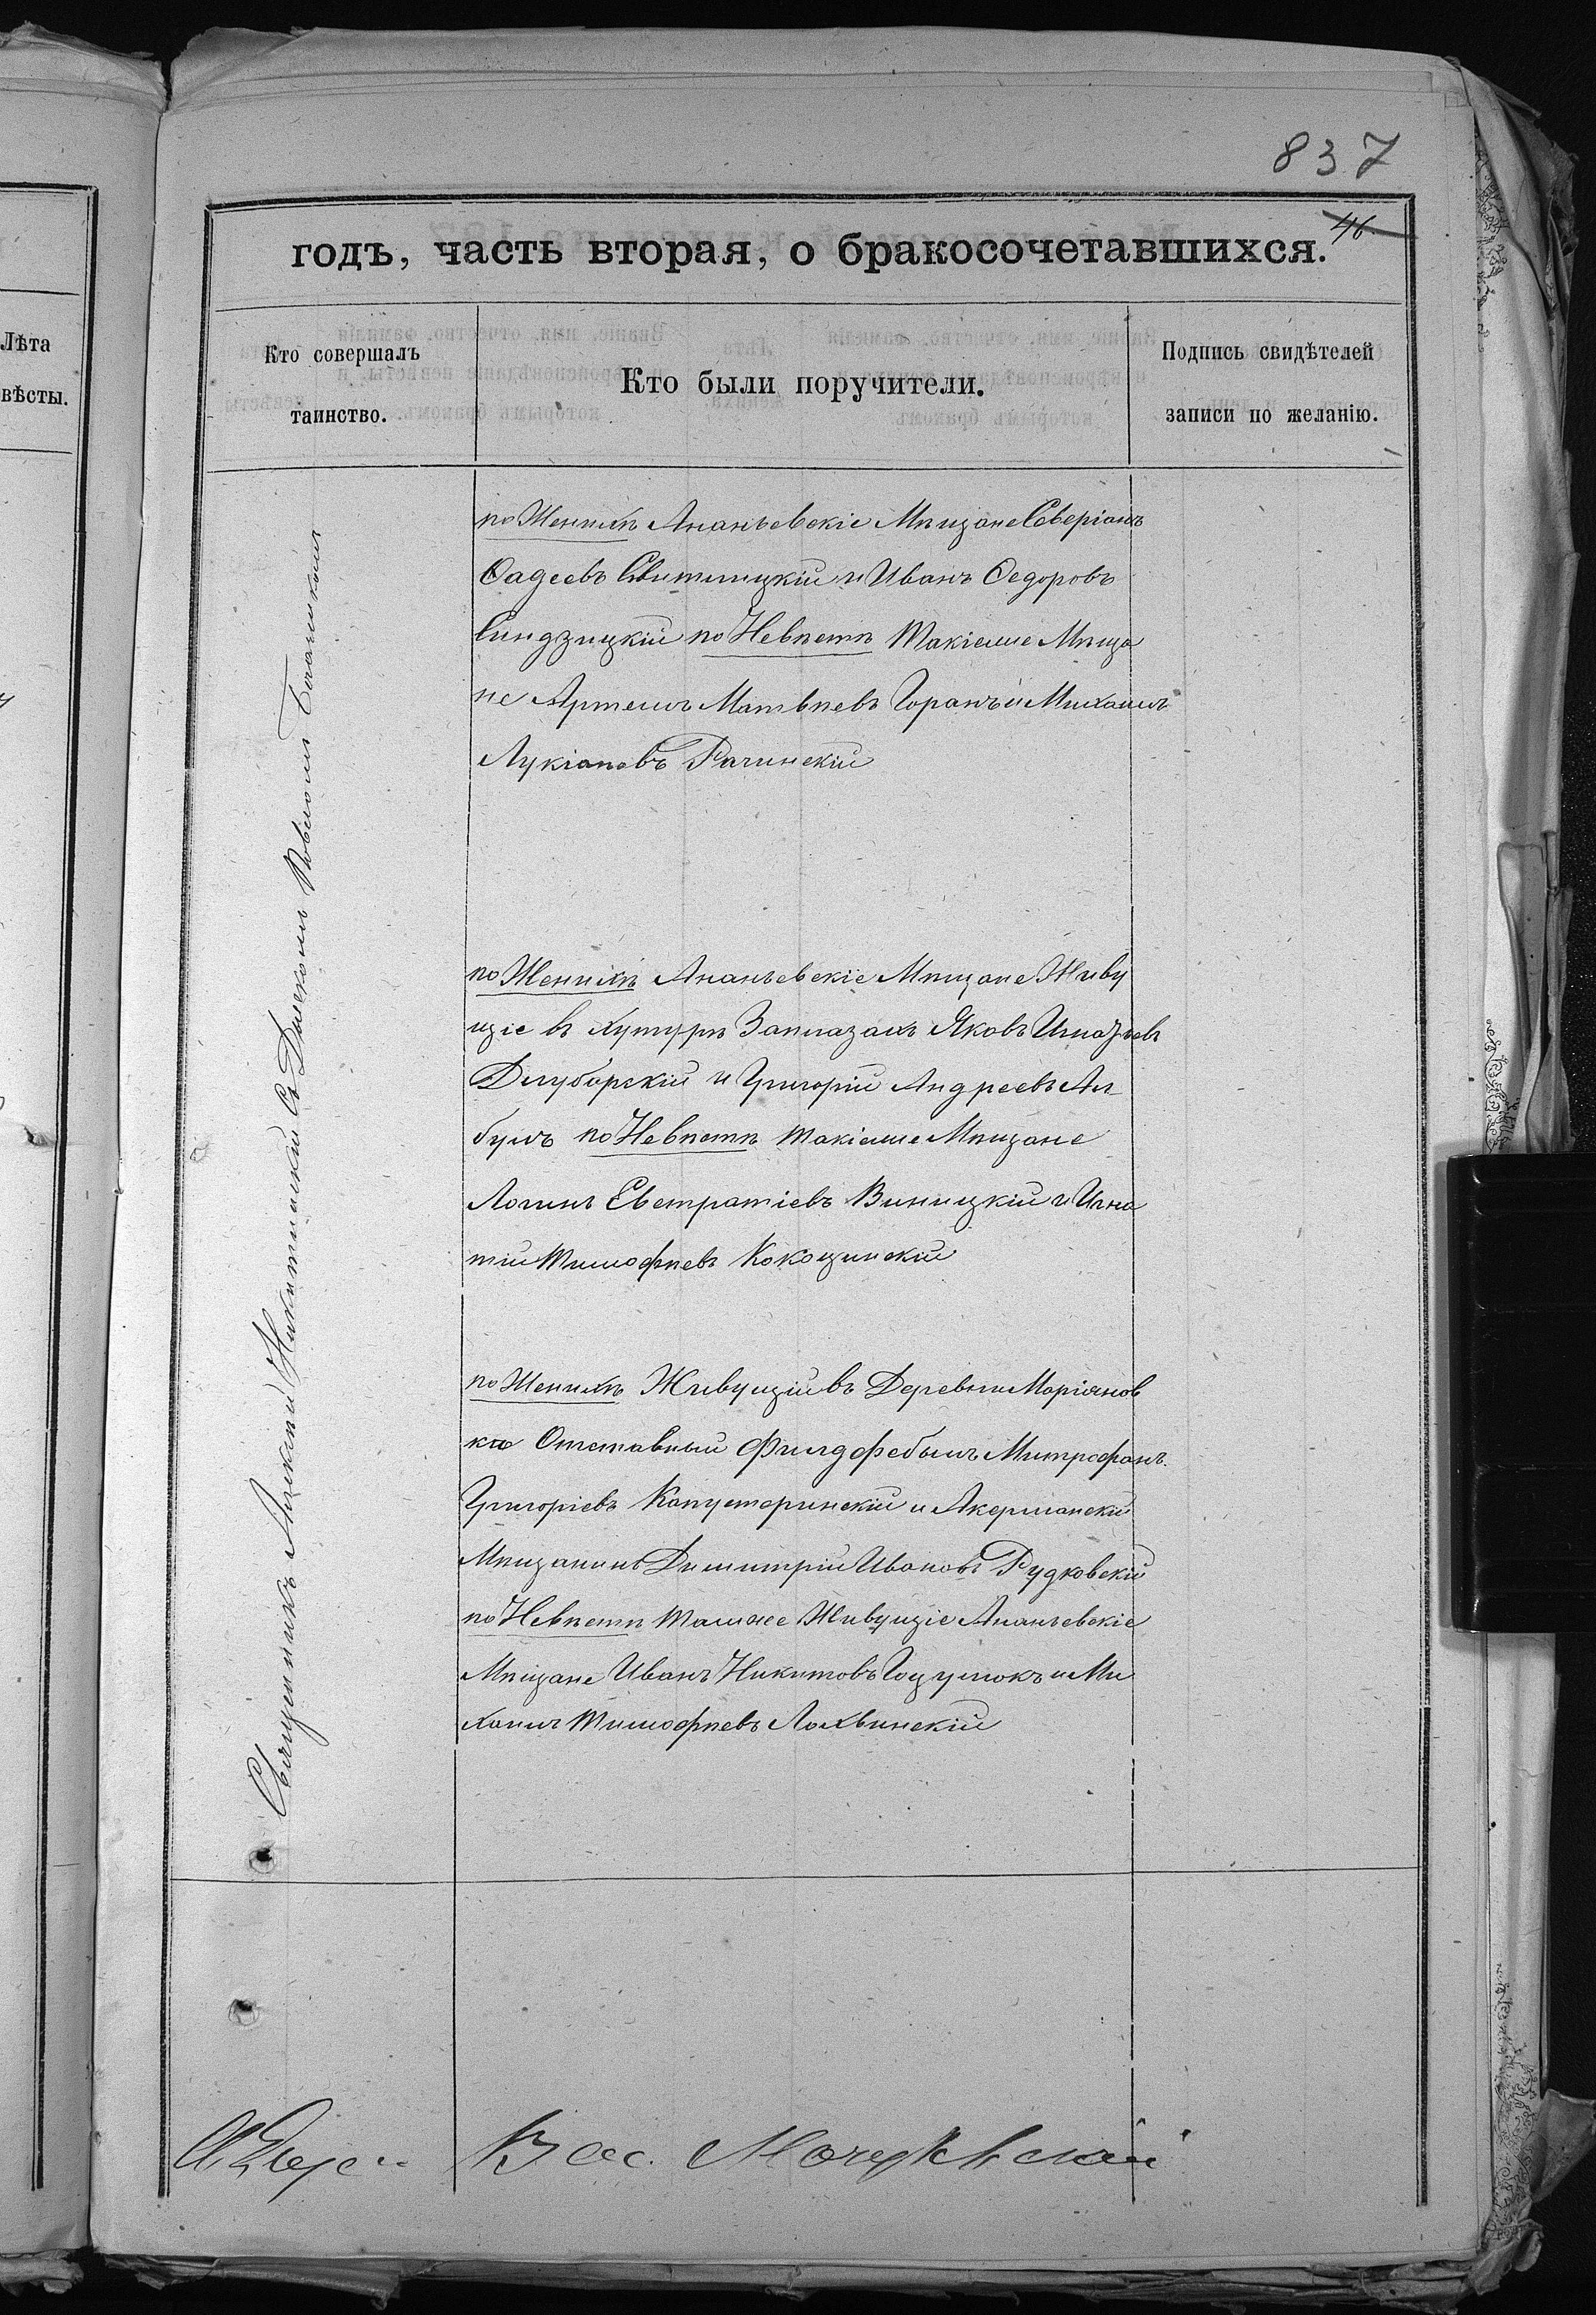 837
46
годъ, часть вторая, о бракосочетавшихся.
Лѣта
вѣсты.
Кто совершалъ
таинство.
Кто были поручители.
Подпись свидѣтелей
записи по желанію.
Священникъ Алексій Никитинскій Съ Дьякомъ Павломъ
по Женихѣ Ананьевскіе Мѣщане Северіанъ
Ѳадеевъ Свитлицкій и Иванъ Ѳедоровъ
Синдзицкій по Невѣстѣ Такіеже Мѣща
не Артемъ Матвѣевъ Горанъ и Михаилъ
Лукіановъ Рачинскій
по Женихѣ Ананьевскіе Мѣщане Живу
щіе въ Хуторѣ Заплазахъ Яковъ Игнатьевъ
Длуборскій и Григорій Андреевъ Ал-
булъ по Невѣстѣ такіеже Мѣщане
Логинъ Евстратіевъ Виницкій и Игна
тій Тимофѣевъ Кокощинскій
по Женихѣ Живущій въ Деревни Маріянов
ка Отставный Филдфебыль Митрофанъ
Григоріевъ Капустеринскій и Акерманскій
Мѣщанинъ Димитрій Ивановъ Рудковскій
по Невѣстѣ Тамже Живущіе Ананьевскіе
Мѣщане Иванъ Никитовъ Гоцулюкъ и Ми
хаилъ Тимофѣевъ Лохвинскій
Вас.